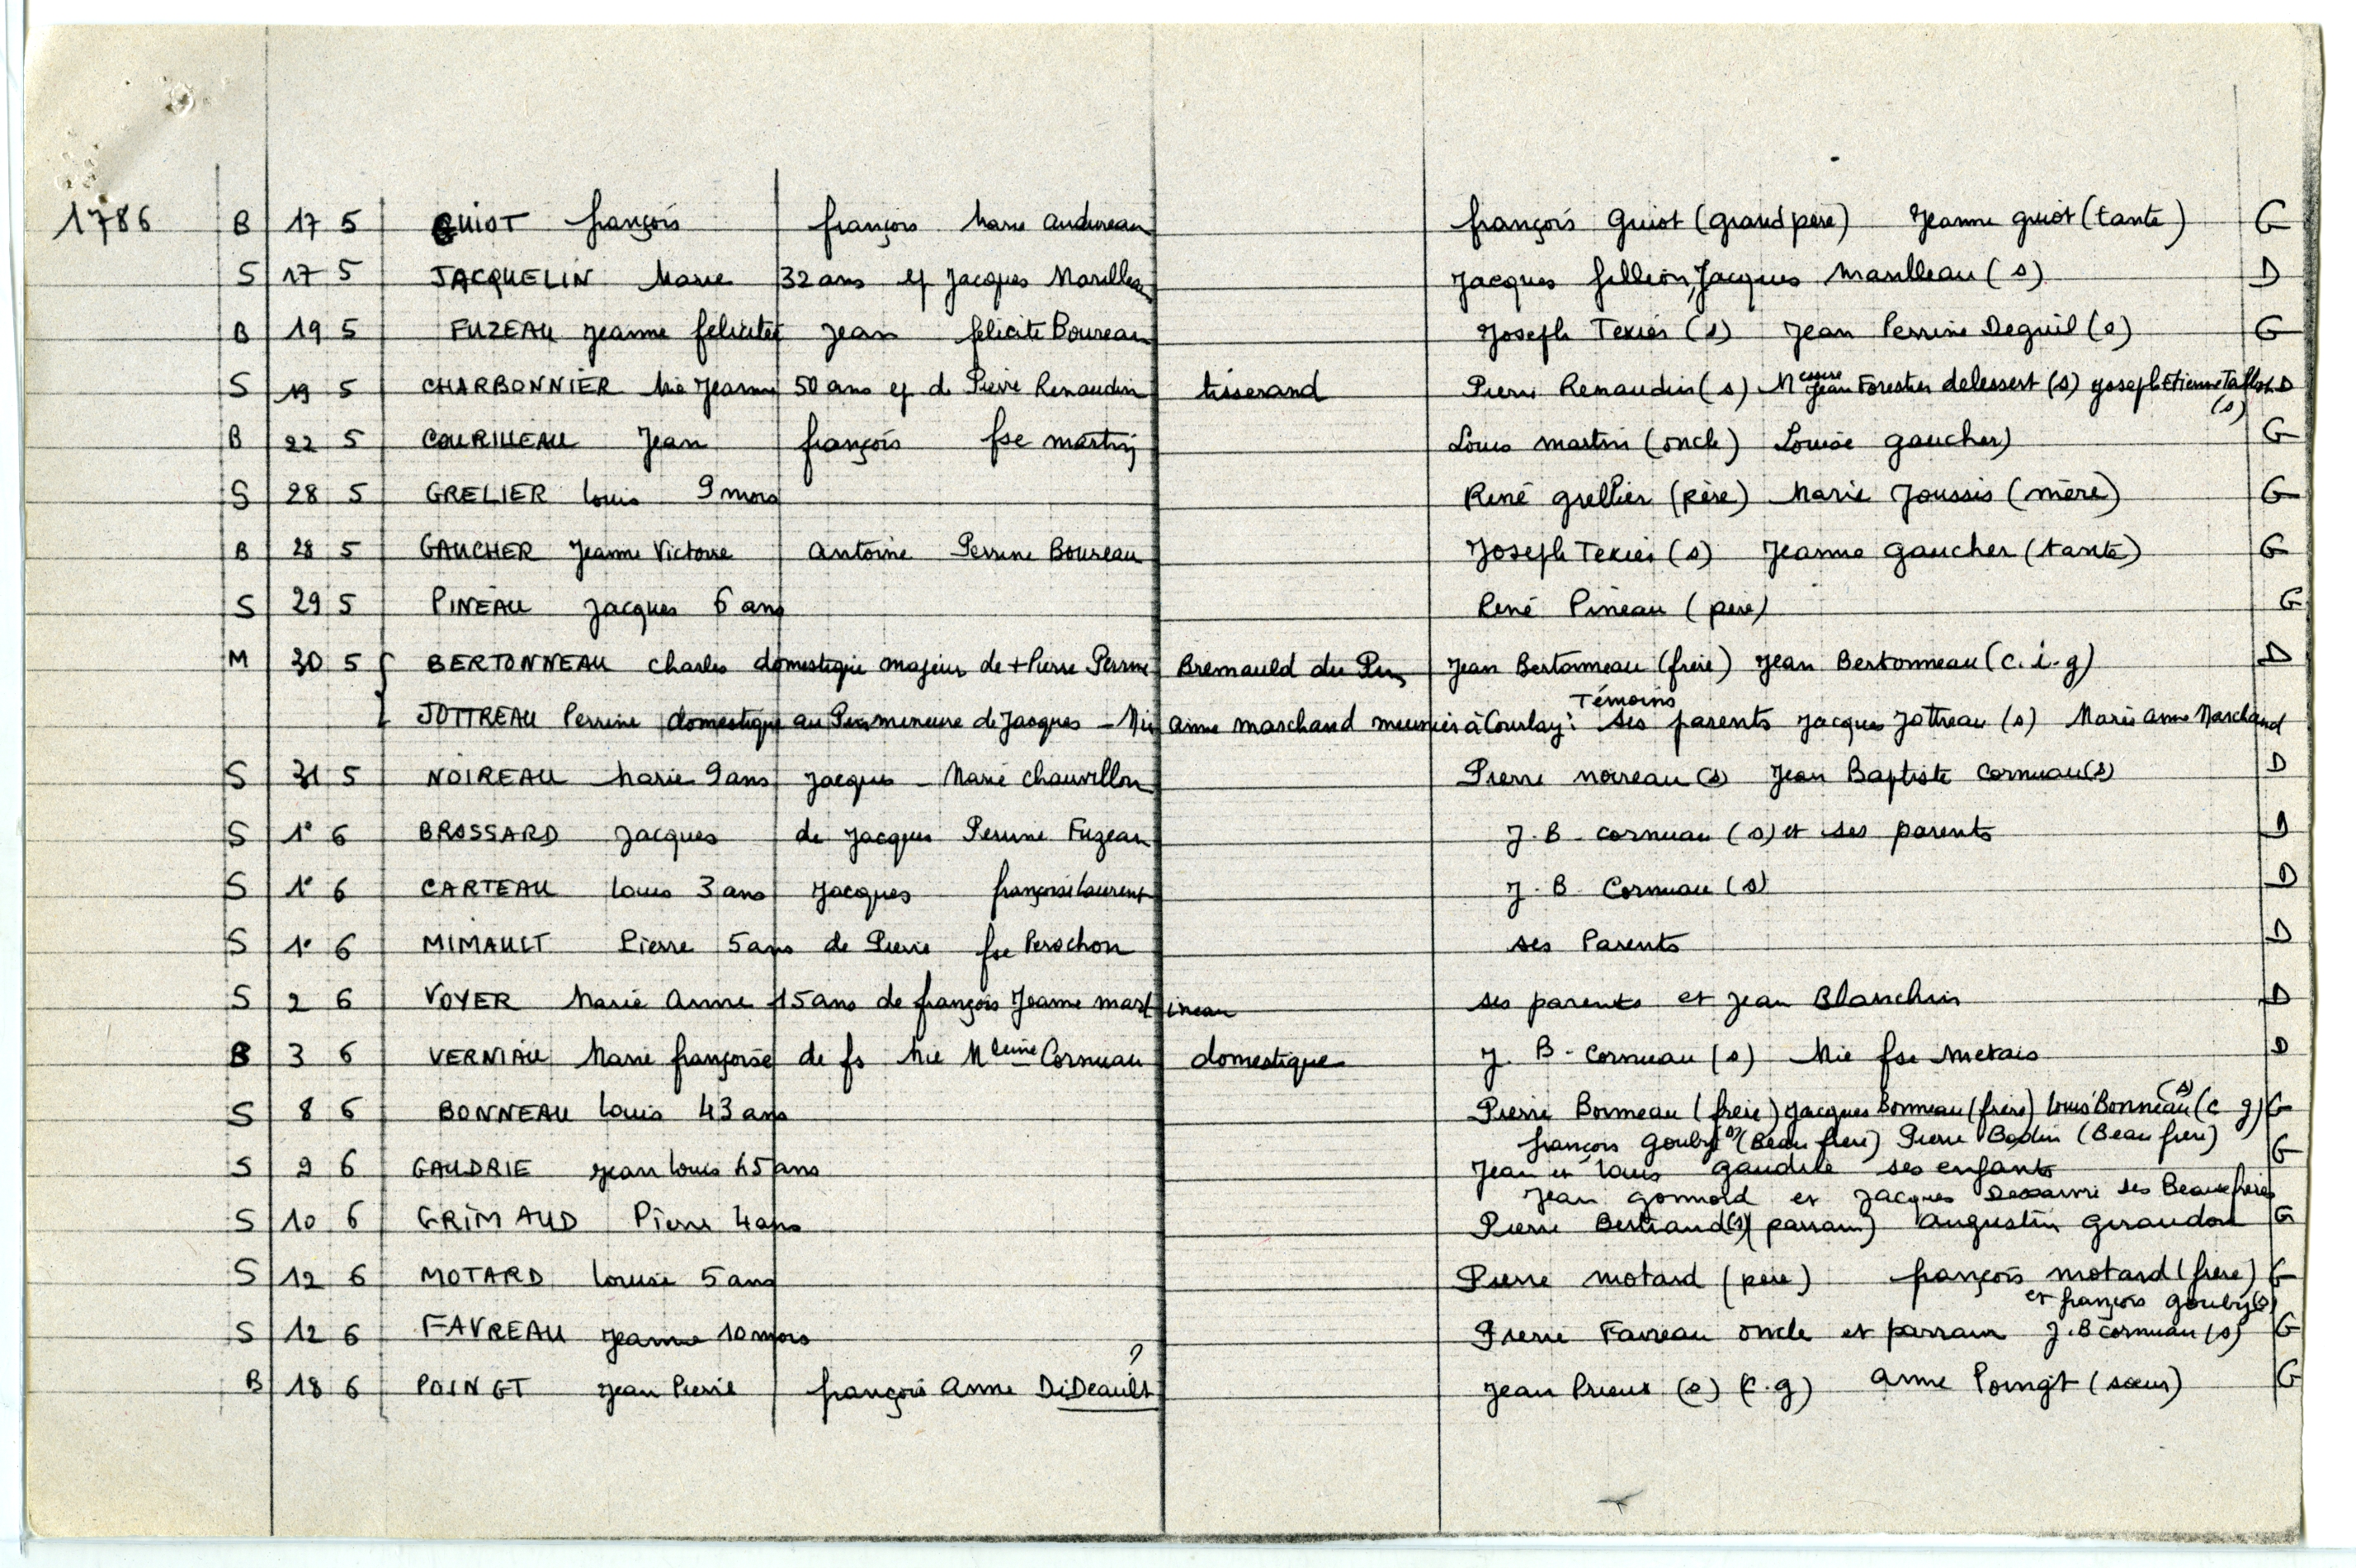 1786 B 17 5 GUIOT françois françois Marie Audureau françois Guiot (grand père) Jeanne guiot (tante) G
S 17 5 JACQUELIN Marie 32 ans ep Jacques Marilleau Jacques fillion, Jacques Marilleau (s) D
B 19 5 FUZEAU Jeanne felicitée Jean felicite Boureau Joseph Texier (s) Jean Perrine Deguil (s) G
S 19 5 CHARBONNIER Mie Jeanne 50 ans ep de Pierre Renaudin tisserand Pierre Renaudin (s) Messire Jean Forestier delessert (s) Joseph Etienne D
(s)
B 22 5 COURILLEAU Jean françois fse martin Louis martin (oncle) Louise gaucher) G
S 28 5 GRELIER Louis 9 mois René grellier (père) Marie Joussis (mère) G
B 28 5 GAUCHER Jeanne Victoire Antoine Perrine Boureau Joseph Texier (s) Jeanne gaucher (tante) G
S 29 5 PINEAU Jacques 6 ans René Pineau (père) G
M 30 5 { BERTONNEAU Charles domestique majeur de + Pierre Perrine Bremauld du Pin Jean Bertonneau (frère) Jean Bertonneau (c. i. g) D
Témoins
JOTTREAU Perrine domestique au Pin mineure de Jacques - Mie Anne marchand meunier à Courlay : ses parents Jacques Jottreau (s) Marie Anne Marchand
S 31 5 NOIREAU Marie 9 ans Jacques - Marie Chauvillon Pierre noireau (s) Jean Baptiste Cornuau (s) D
S 1° 6 BROSSARD Jacques de Jacques Perrine Fuzeau J. B. cornuau (s) et ses parents D
S 1° 6 CARTEAU Louis 3 ans Jacques françoise Laurent J. B. Cornuau (s) D
S 1° 6 MIMAULT Pierre 5 ans de Pierre fse Perochon ses Parents D
S 2 6 VOYER Marie Anne 15 ans de françois Jeanne martineau ses parents et Jean Blanchin D
B 3 6 VERNIAU Marie françoise de fs Mie Mleine Cornuau domestique J. B. Cornuau (s) Mie fse Metais D
S 8 6 BONNEAU Louis 43 ans Pierre Bonneau (frère) Jacques Bonneau (frère) Louis Bonneau (s) (c g) G
françois Gouby (s) (Beau frere) Pierre Bodin (Beau frere)
S 9 6 GAUDRIE Jean Louis 45 ans Jean et Louis Gaudrie ses enfants G
Jean gonnord et Jacques ses Beaux frères
S 10 6 GRIMAUD Pierre 4 ans Pierre Bertrand (s) (parrain) Augustin Geraudon G
S 12 6 MOTARD Louise 5 ans Pierre motard (père) françois motard (frere) G
et françois gouby (s)
S 12 6 FAVREAU Jeanne 10 mois Pierre Favreau oncle et parrain J. B cornuau (s) G
?
B 18 6 POINGT Jean Pierre françois Anne DiDeault Jean Prieur (s) (c. g) Anne Poingt (sœur) G